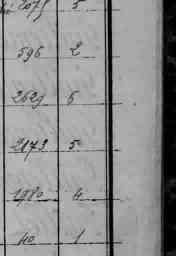 2075 5
596 2
2629 6
2173 5
1980 4
40 1